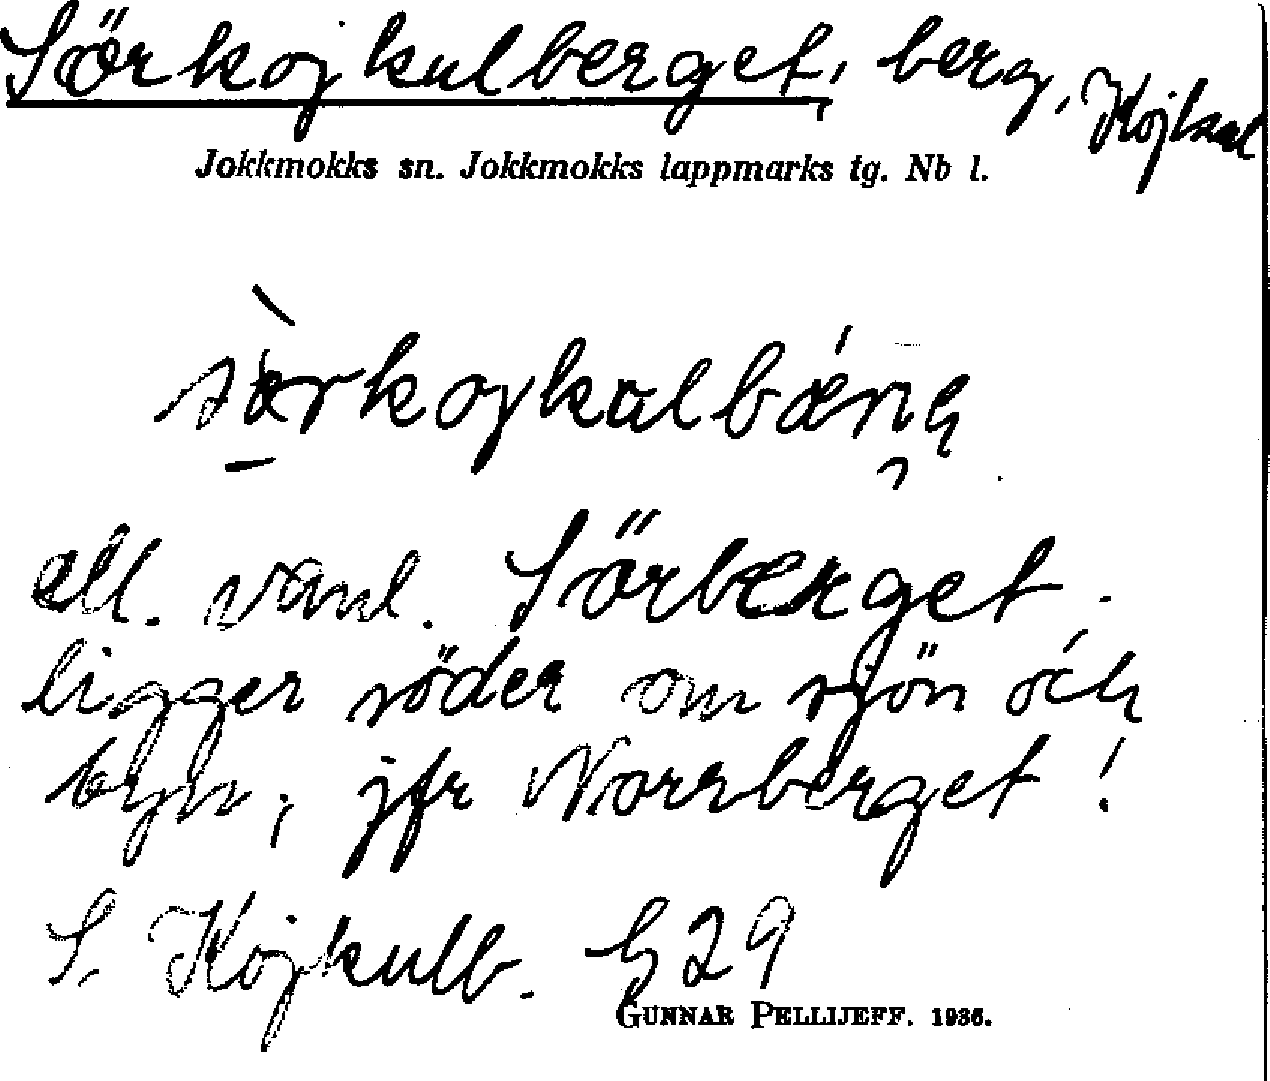 Sörkojkulberget, berg, Kojkul
Jokkmokks sn. Jokkmokks lappmarks tg. Nb l.
ell. vanl. Sörberget.
ligger söder om sjön och
byn; jfr Norrberget!
S. Kojkulb. G 29
GUNNAR PELLIJEFF. 1936.